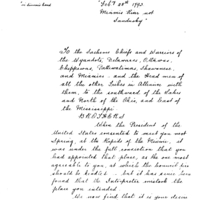 "Feby 28th 1793
Miamis River near
Sandusky"
To the Sachems Chiefs and Warriors of
the Wyandots, Delawares, Ottawas,
Chippawas, Potawatimas, Shawanese,
and Miamis - and the Head men of
all the other Tribes in Alliance with
them, to the southward of the Lakes
and North of the Ohio, and East of
the Mississippi
BROTHERS
When the President of the
United States consented to meet you next
Spring, at the Rapids of the Miamis, it
was under the full conviction that you
had appointed that place, as the one most
agreeable to you, at which the
should be kindled - but it has since been
found that the Interpreter mistook the
place you intended
We now find that it is your desire